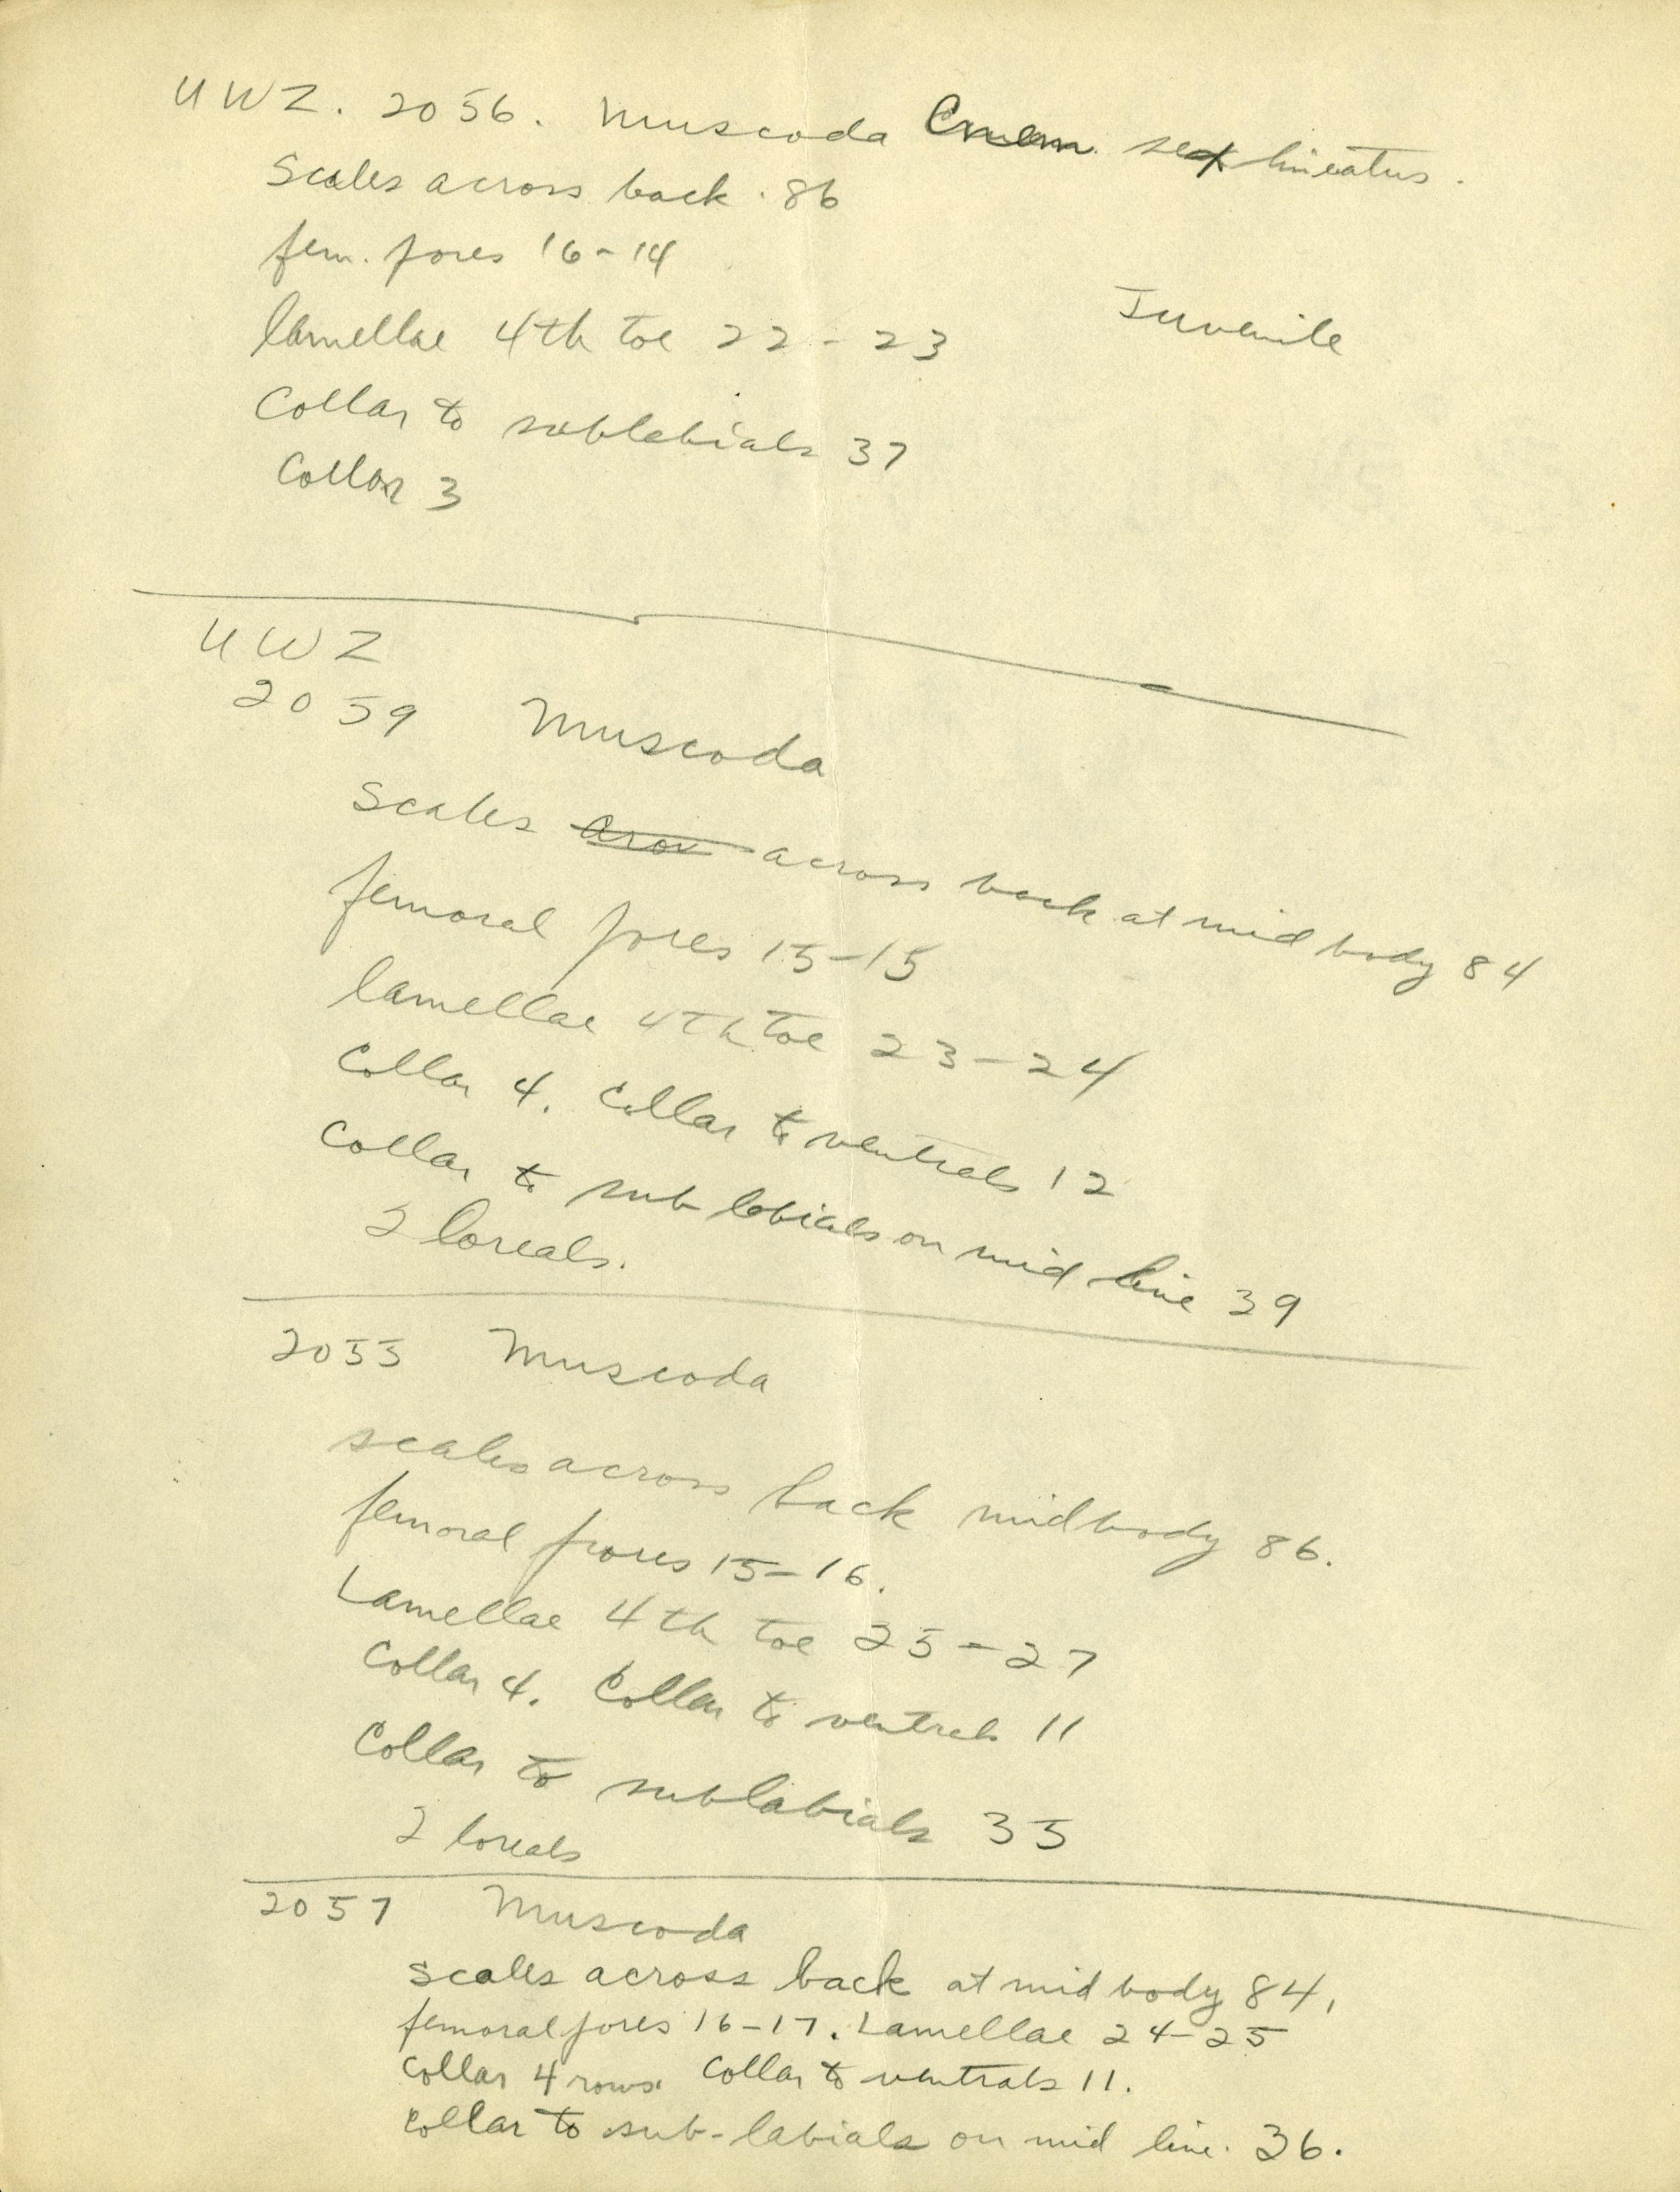 UWZ. 2056. Muscoda Cnem. sexlineatus.
Scales across back. 86
fem. pores 16-14
Juvenile
lamellae 4th toe 22-23
Collar to sublabials 37
Collar 3
UWZ
2059 Muscoda
Scales across back at mid body 84
femoral pores 15-15
lamellae 4th toe 23-24
Collar 4. Collar to ventrals 12
Collar to sub labials on mid line 39
2 loreals.
2055 Muscoda
scales across back midbody 86.
femoral pores 15-16.
Lamellae 4th toe 25-27
Collar 4. Collar to ventrals 11
Collar to sublabials 35
2 loreals
2057 Muscoda
scales across back at mid body 84,
femoral pores 16-17. Lamellae 24-25
collar 4 rows. Collar to ventrals 11.
collar to sub-labials on mid line. 36.